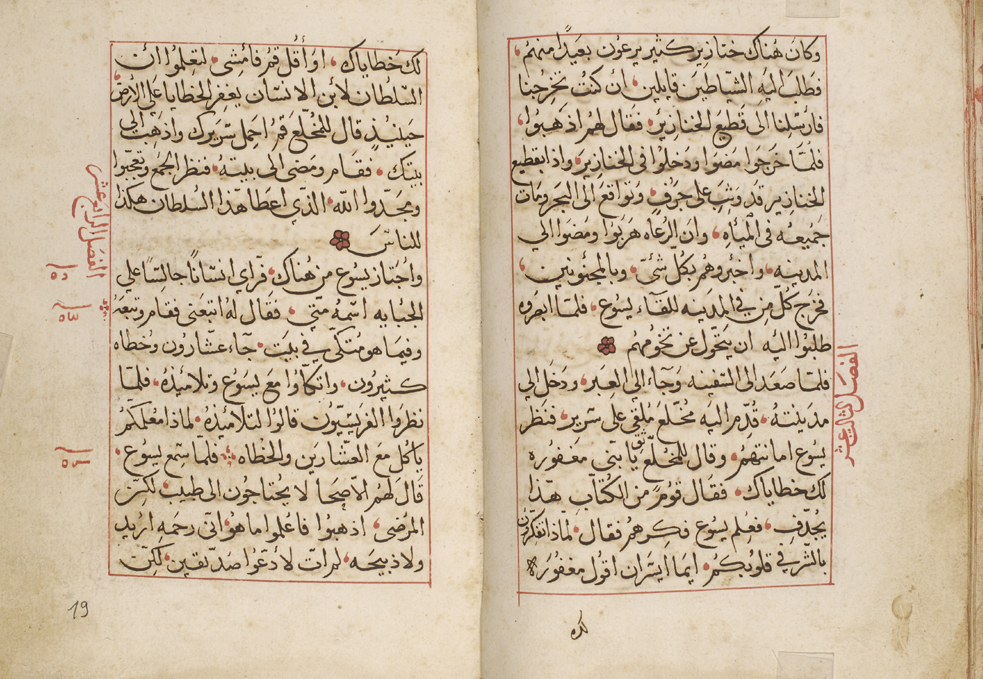 وكان هناك خنازير كثير يرعون بعيدًا منهم،
فطلب اليه الشياطين قايلين، ان كنت تخرجنا
فارسلنا الى قطيع الخنازير، فقال لهم اذهبوا،
فلمّا خرجوا مضوا ودخلوا في الخنازير، واذا بقطيع
الخنازير قد وثب على جرف، وتواقع الى البحر ومات
جميعه في المياه، وان الرعاه هربوا ومضوا الي
المدينه، واخبروهم بكل شئ، وبالمجنونين،
فخرج كل من في المدينه للقاء يسوع، فلمّا ابصروه
طلبوا اليه ان يتحول عن تخومهم
الفصل الثالث عشر
فلمّا صعد الى السفينه وجاء الى العبر، ودخل الي
مدينته، قُدّم اليه مخلّع ملقى على سرير، فنظر
يسوع امانتهم، وقال للمخلّع ثق يا بني مغفوره
لك خطاياك، فقال قوم من الكتّاب هذا
يجدّف، فعلم يسوع فكرهم فقال، لماذا تفكّرون
بالشر في قلوبكم، ايّما ايسر ان اقول مغفوره
لك
لك خطاياك، او أقل قم فامشى، لتعلموا ان
السلطان لابن الانسان يغفر الخطايا على الارض
حينيذٍ قال للمخلّع قُم احمل سريرك واذهب الي
بيتك، فقام ومضى الى بيته، فنظر الجمع وتعجبوا
ومجدوا الله، الذي اعطا هذا السلطان هكذا
للناس
الفصل الرابع عشر
واجتاز يسوع من هناك، فراي انسانًا جالسًا على
الجبايه اسمه متّي، فقال له اتبعني فقام وتبعه
وفيما هو متكى في بيت، جاء عشارون وخطاه
كثيرون، واتكاوا مع يسوع وتلاميذه، فلمّا
نظروا الفريسيّون قالوا لتلاميذه، لماذا معلمكم
ياكل مع العشّارين والخطاه، فلمّا سمع يسوع،
قال لهم الاصحا لا يحتاجون الى طبيب، لكن
المرضى، اذهبوا فاعلموا ما هو اني رحمه اريد
ولا ذبيحه، لم ات لادعوا صدّيقين، لكن
19